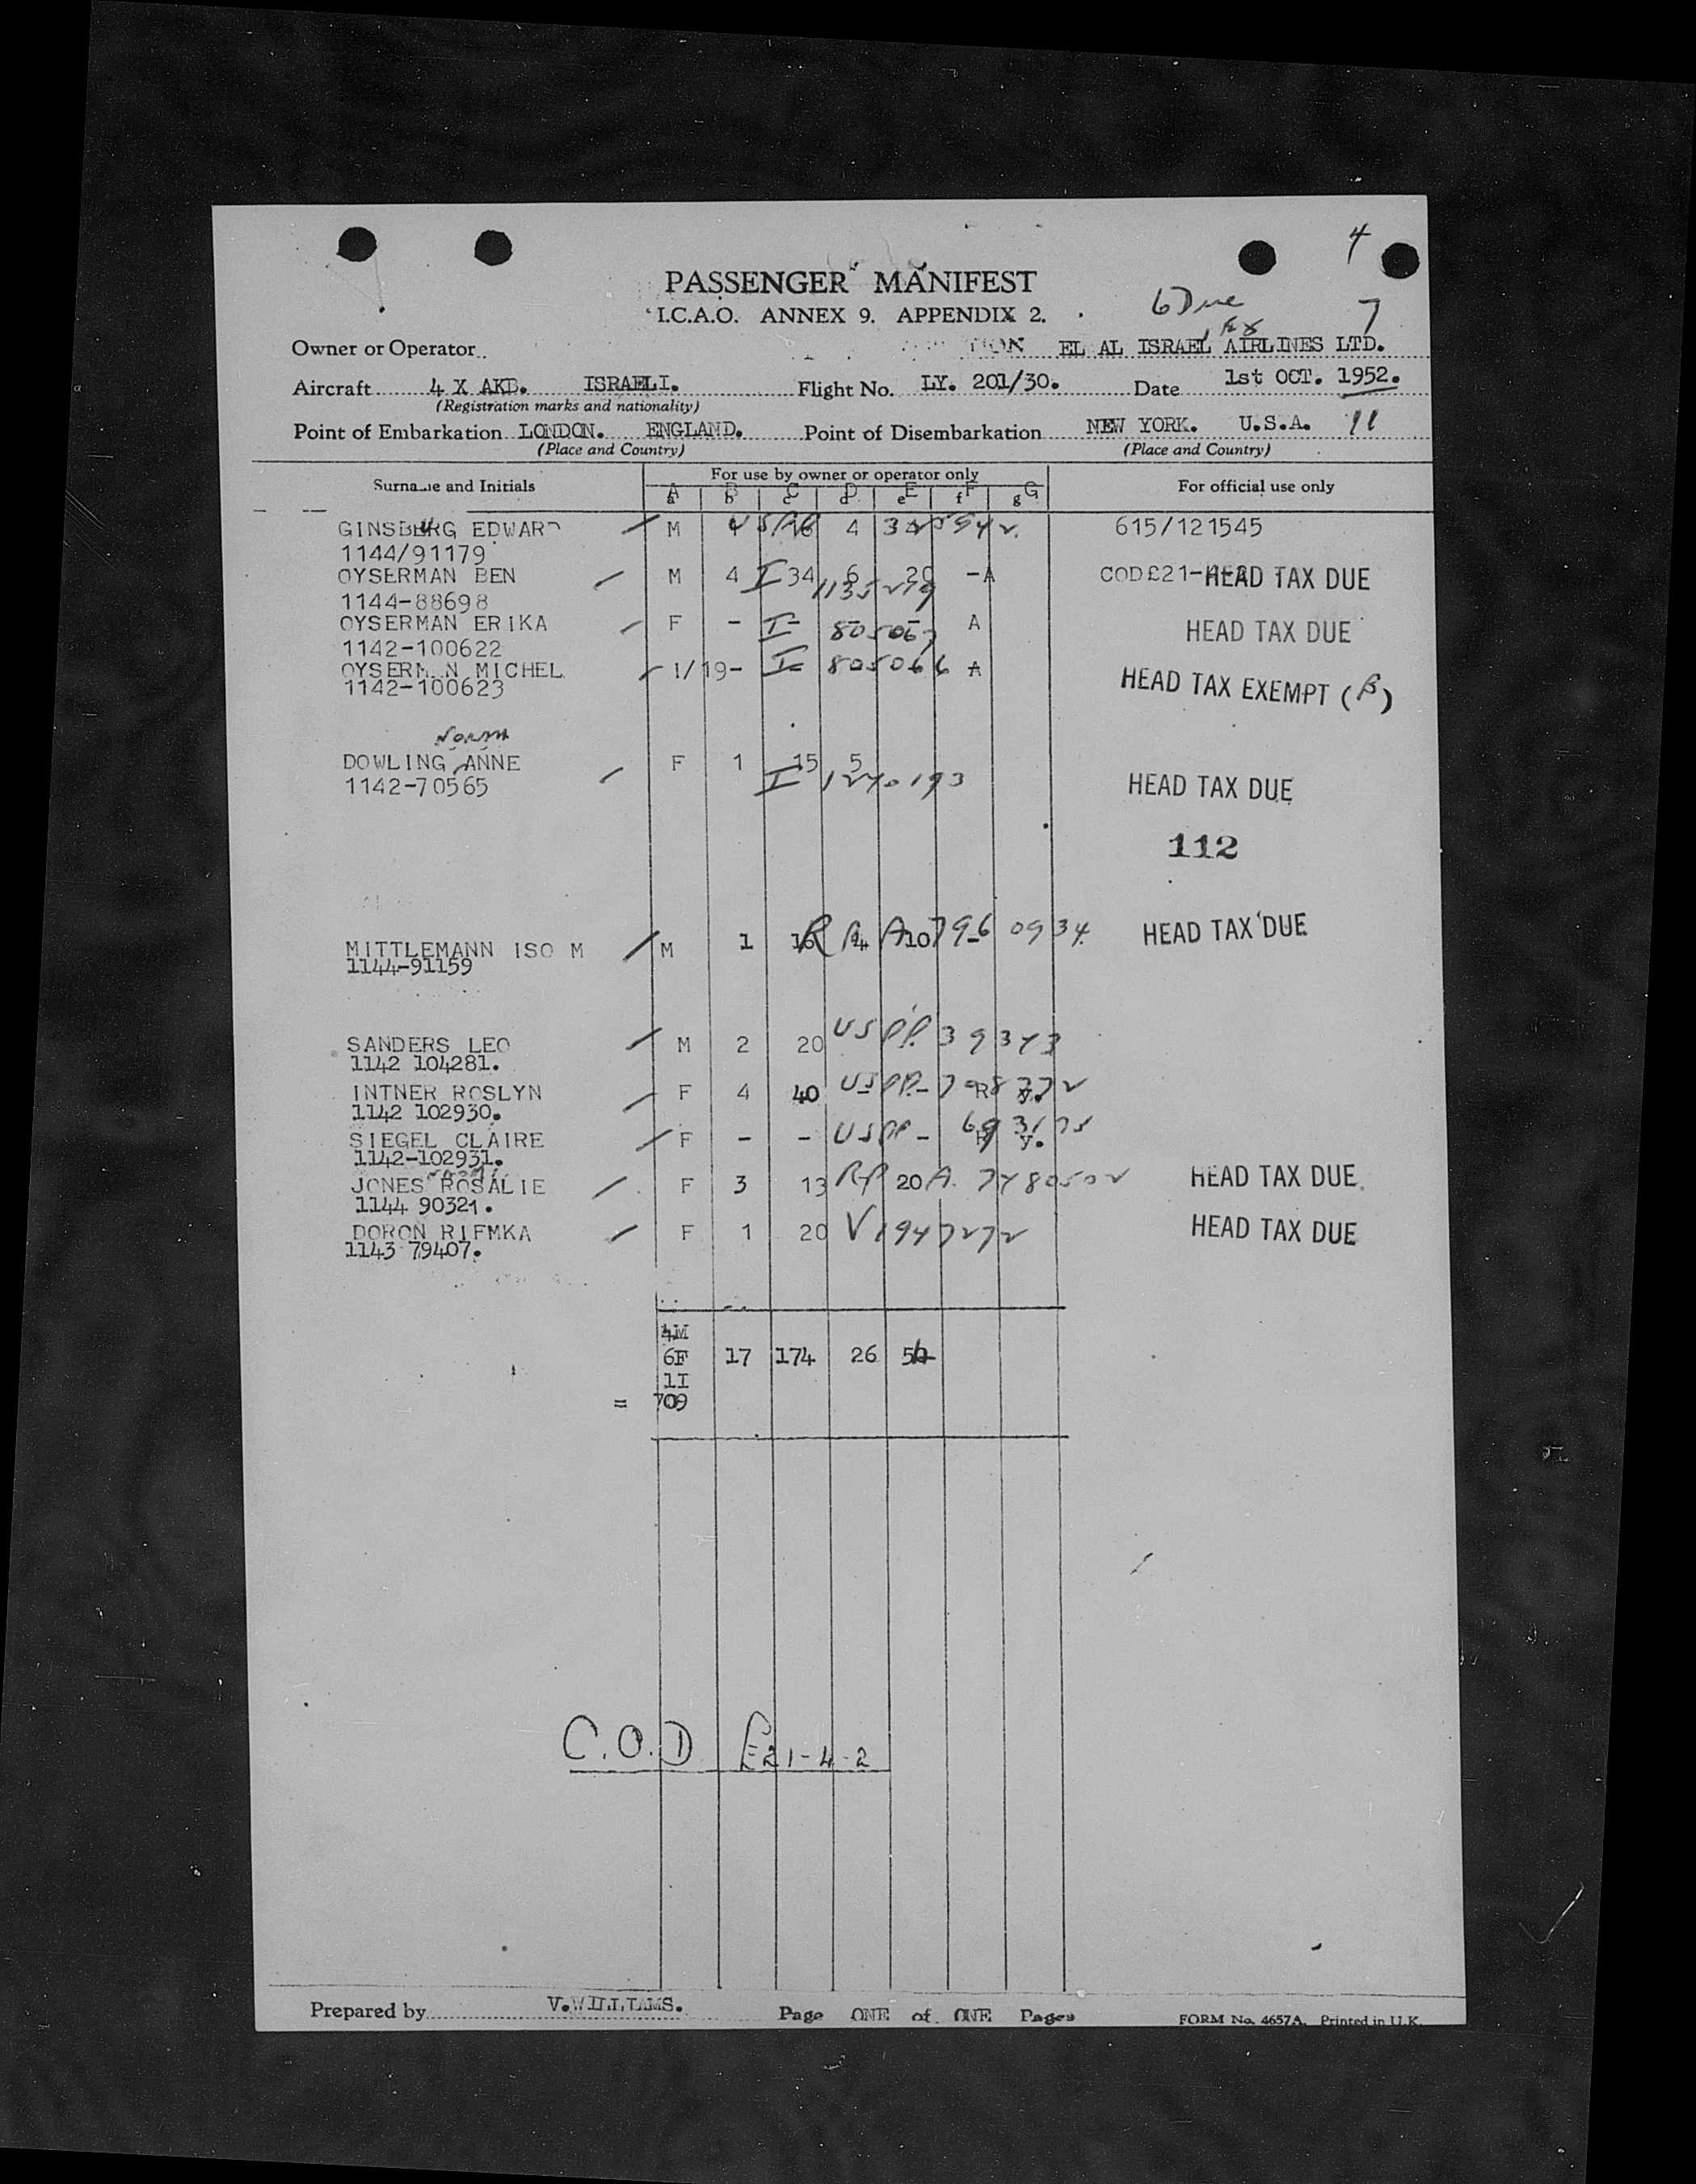 4
PASSENGER MANIFEST
I.C.A.O. ANNEX 9. APPENDIX 2.
6 Due
7
Owner or Operator EL AL ISRAEL AIRLINES LTD.
Aircraft 4 X AKB. ISRAELI. Flight No. LY. 201/30. Date 1st OCT. 1952.
(Registration marks and nationality)
Point of Embarkation LONDON. ENGLAND. Point of Disembarkation NEW YORK. U.S.A. 11
(Place and Country) (Place and Country)
Surname and Initials For use by owner or operator only For official use only
A B C D E F G
a b c d e f g
GINSBURG EDWARD M 4 615/121545
1144/91179
OYSERMAN BEN M 4 I 34 6 20 -A COD£21- HEAD TAX DUE
1135279
1144-88698
OYSERMAN ERIKA F - I - 805067 A HEAD TAX DUE
1142-100622
OYSERMAN MICHEL 1/19- I- 805066 A HEAD TAX EXEMPT (B)
1142-100623
Norma
DOWLING ANNE F 1 15 5
1142-70565 I 1270193 HEAD TAX DUE
112
MITTLEMANN ISO M M 1 16 R P 4 A 10 796 0934 HEAD TAX DUE
1144-91159
SANDERS LEO M 2 20 USPP. 39373
1142 104281.
INTNER ROSLYN F 4 40 USPP-
1142 102930.
SIEGEL CLAIRE F - - USPP -
1142-102931.
JONES ROSALIE F 3 13 RP 20 A. 7480502 HEAD TAX DUE
1144 90321.
DORON RIFMKA F 1 20 V1947272 HEAD TAX DUE
1143 79407.
4M
6F 17 174 26
1I
= 709
C.O.D £21-4-2
Prepared by V.WILLIAMS. Page ONE of ONE Pages FORM No. 4657A. Printed in U.K.